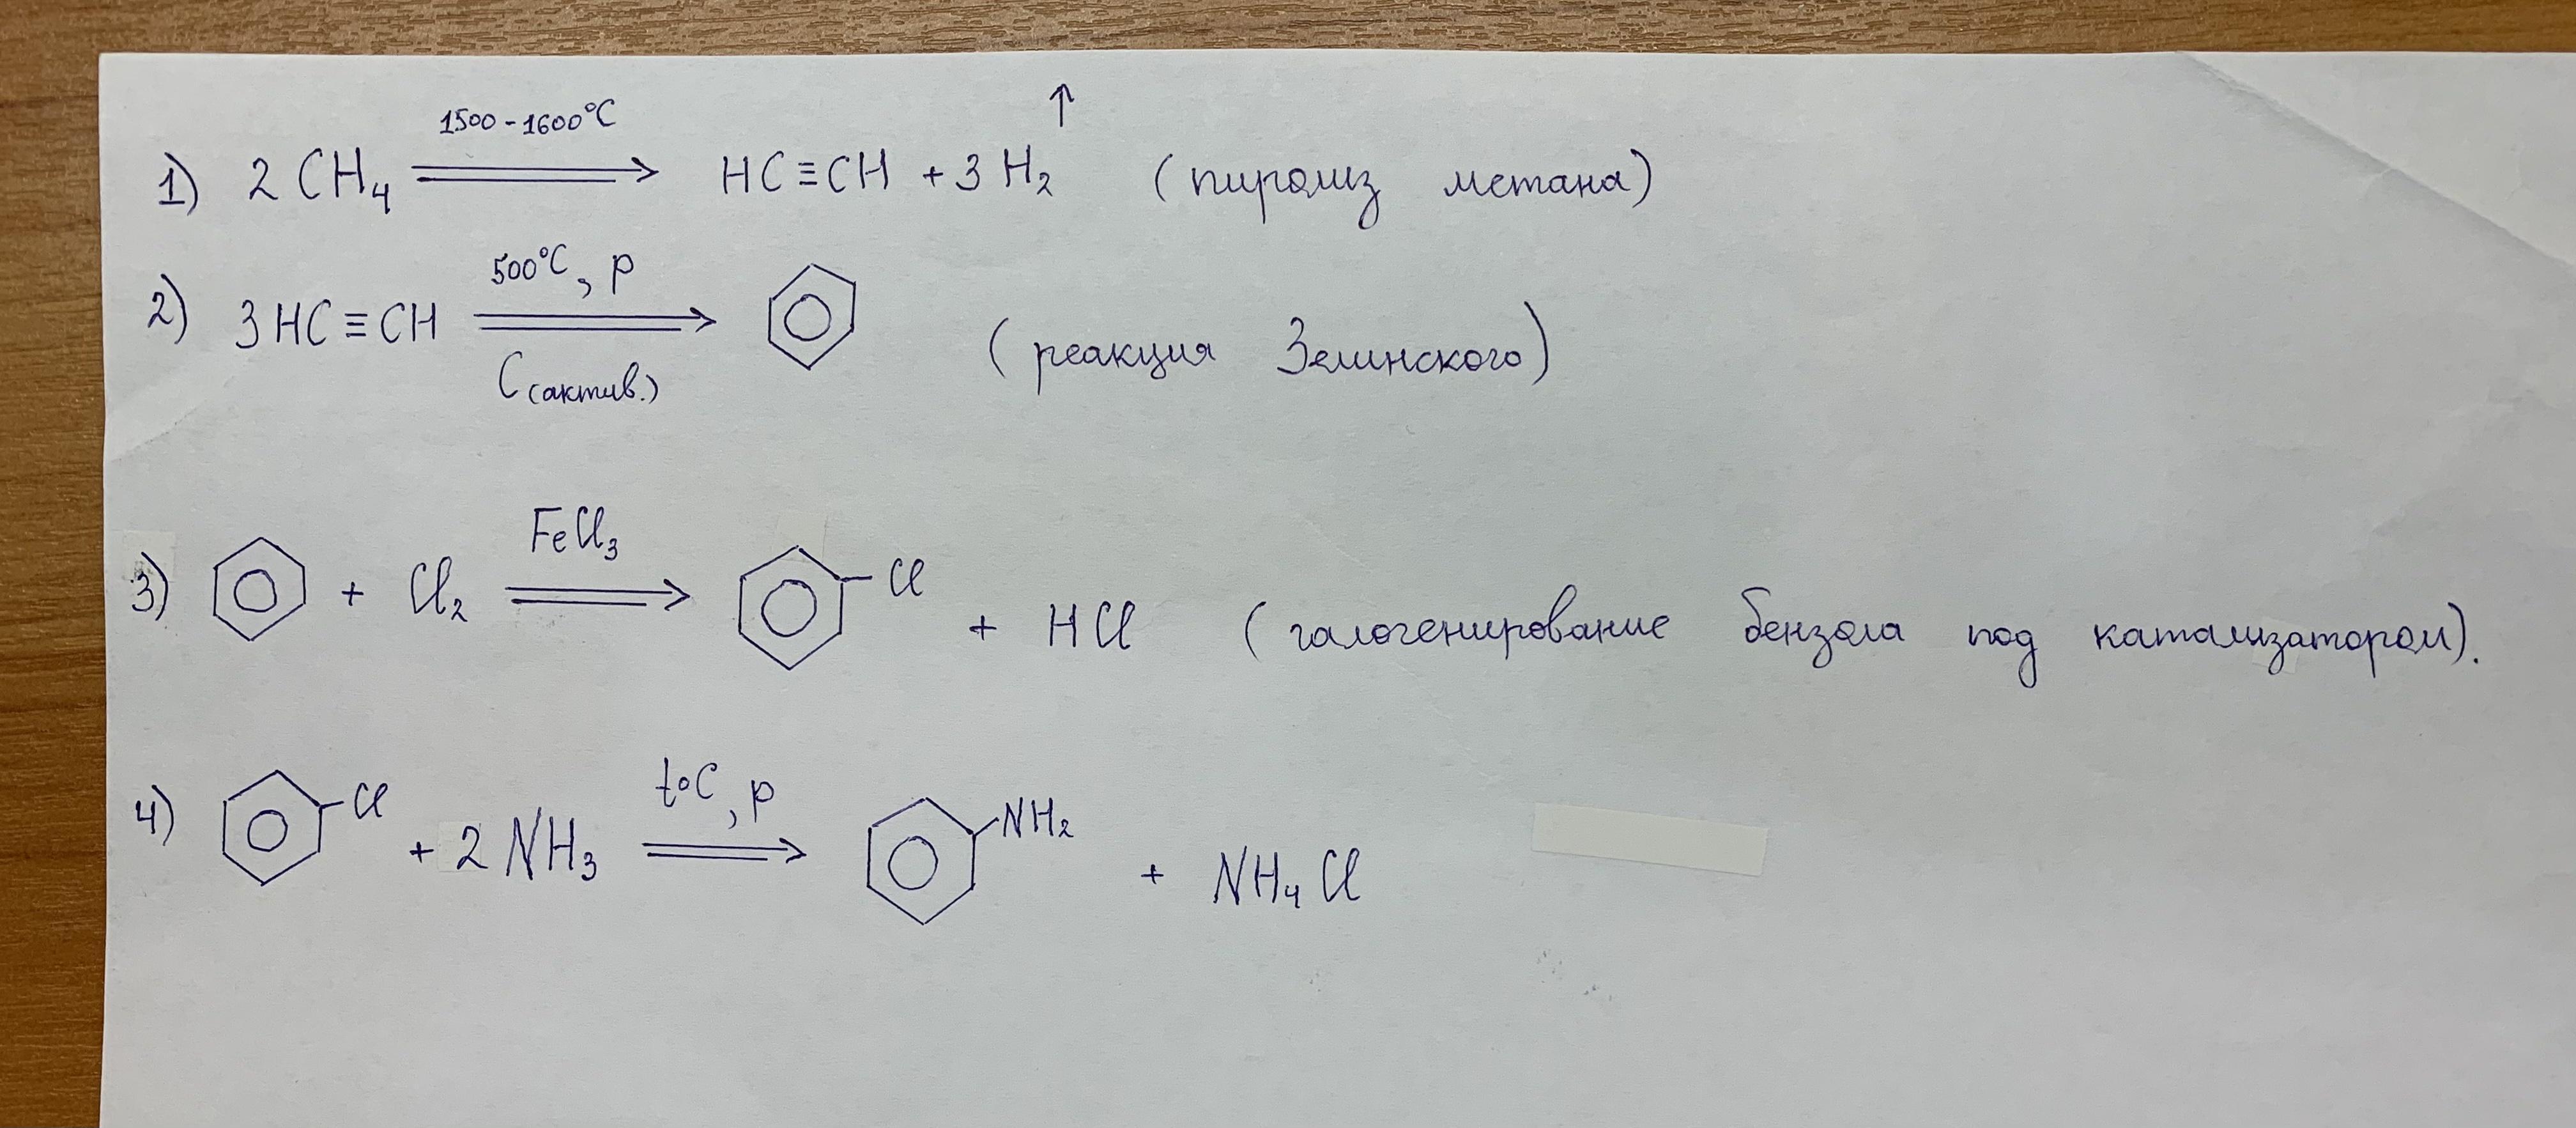 1) 2 CH₄ 1500-1600°C ⟹ HC≡CH + 3 H₂ ↑ (пиролиз метана)
2) 3 HC≡CH 500°C, p ⟹ C(актив.) (реакция Зелинского)
3) + Cl₂ FeCl₃ ⟹ Cl + HCl (галогенирование бензола под катализатором).
4) Cl + 2 NH₃ t°C, p ⟹ NH₂ + NH₄Cl